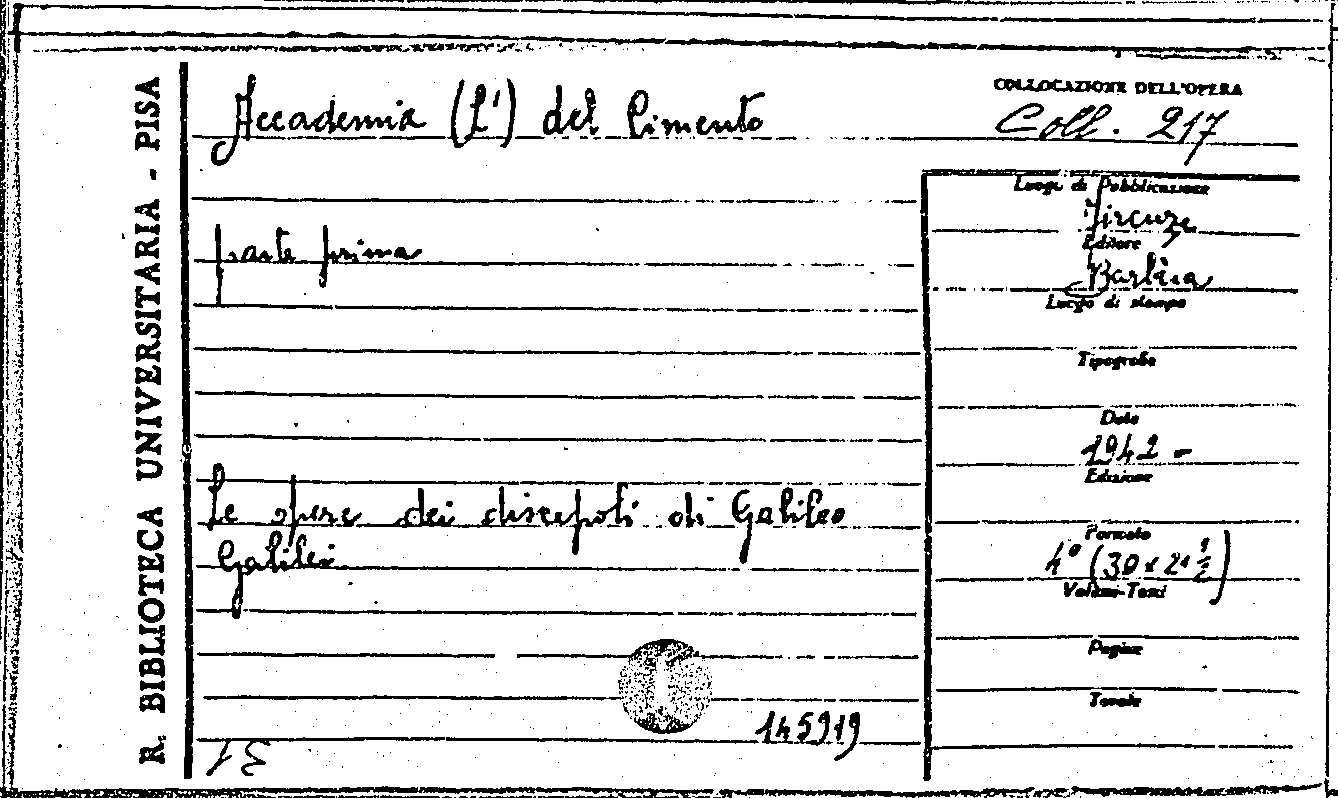 R. BIBLIOTECA UNIVERSITARIA - PISA
Accademia (L') del Cimento
parte prima
Le opere dei discepoli di Galileo
Galilei
145919
COLLOCAZIONE DELL'OPERA
Coll. 217
Luogo di Pubblicazione
Firenze
Editore
Barbèra
Luogo di stampa
Tipografia
Data
1942 -
Edizione
Formato
4° (30 x 21 ½)
Volumi-Tomi
Pagine
Tavole